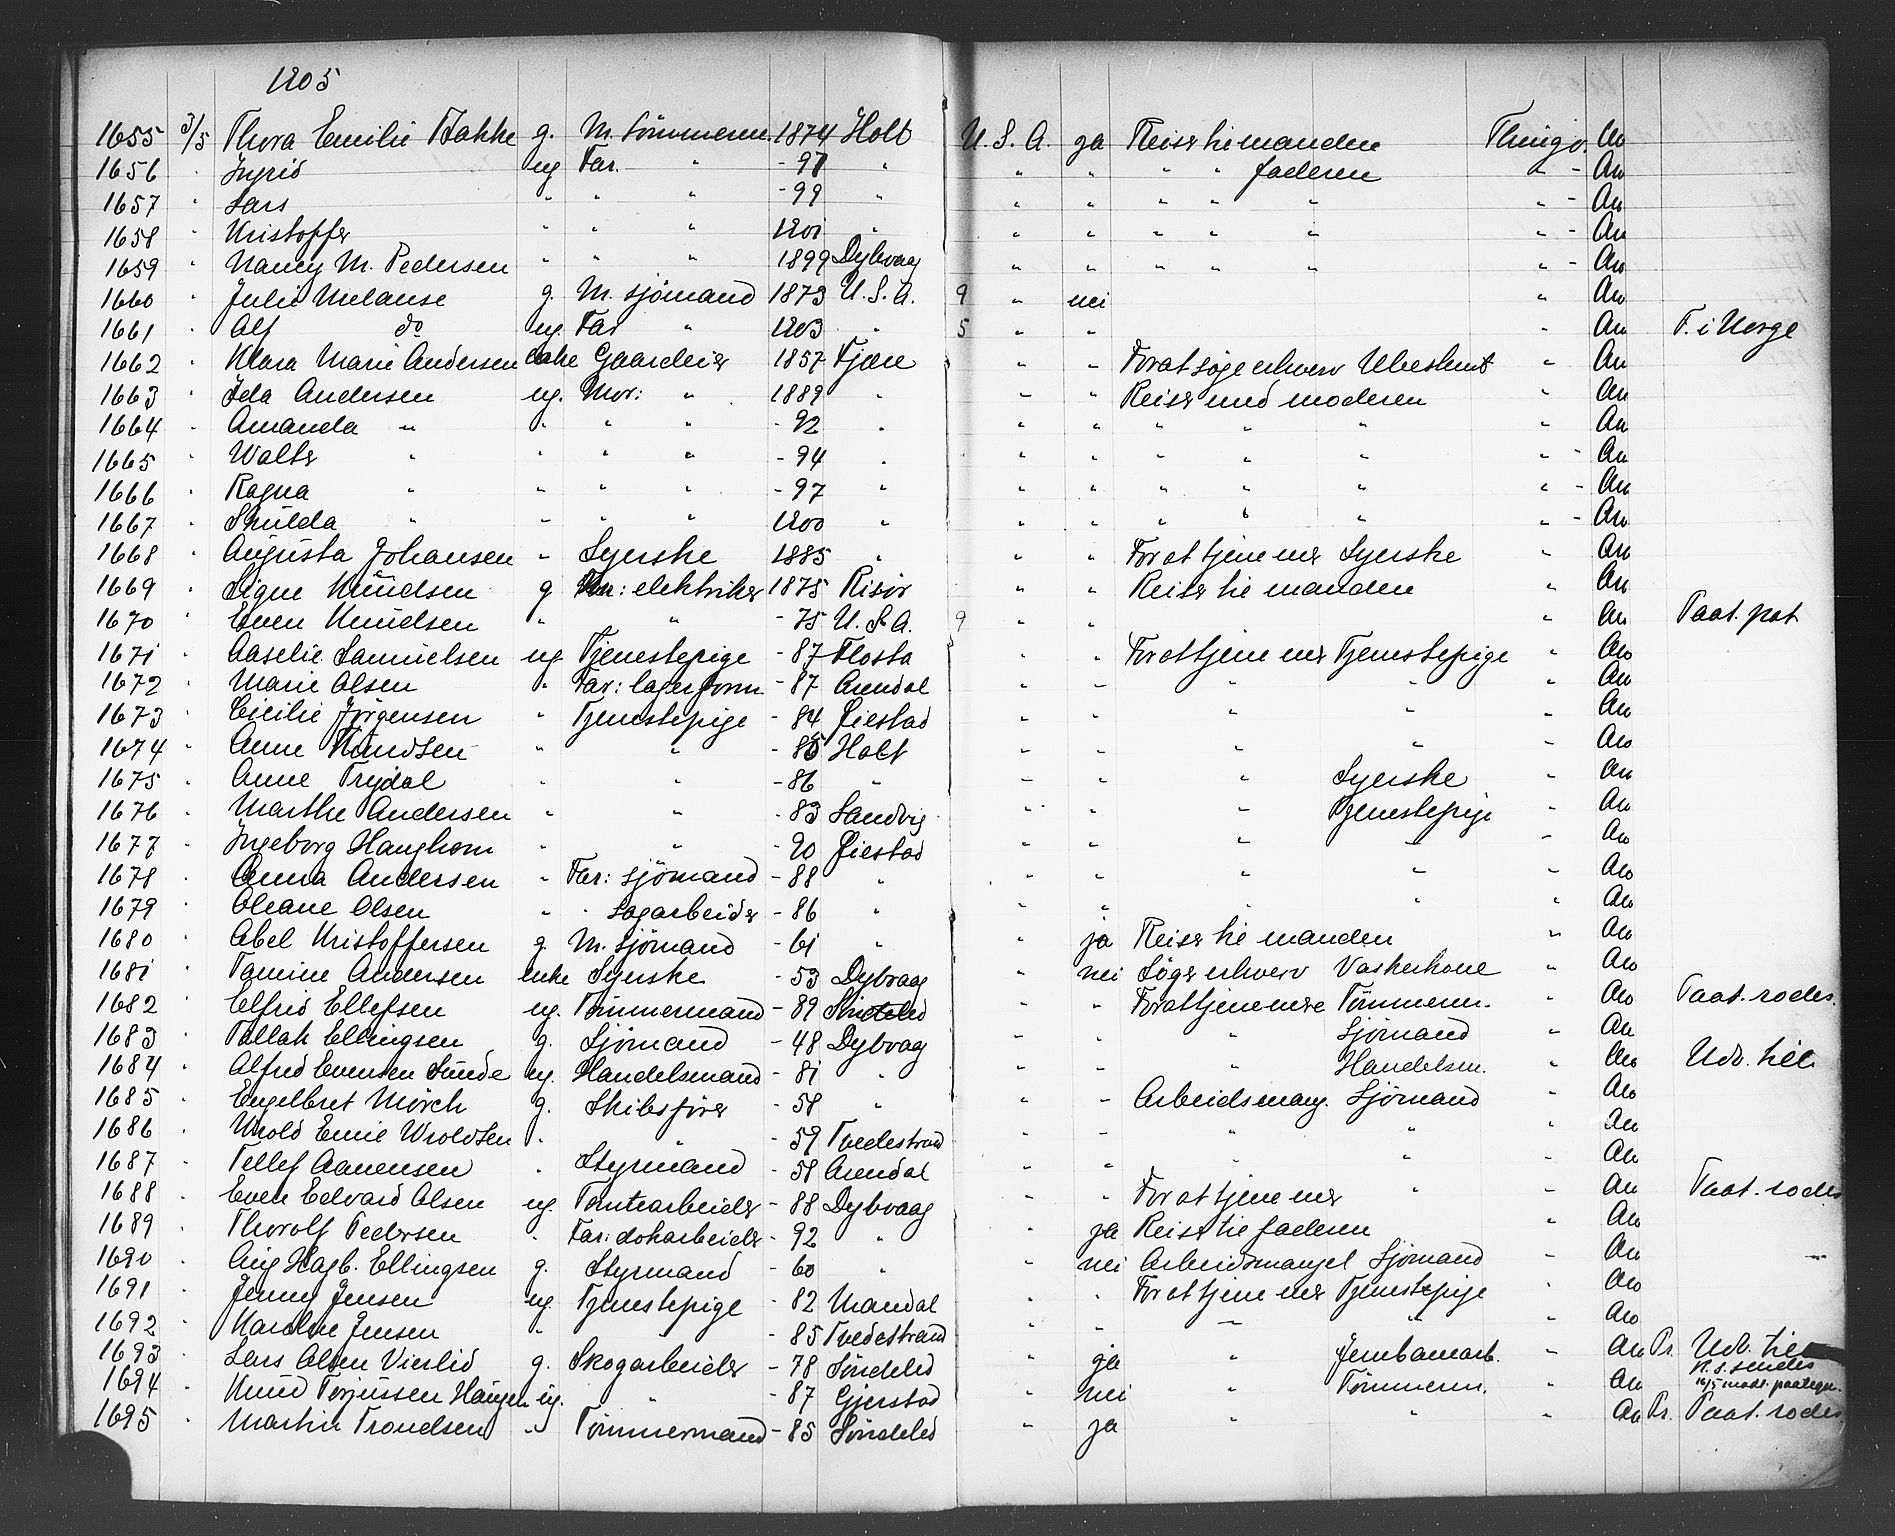 1905
1655 3/5 Thora Emilie Bakke g. M. Tömmerm. 1874 Holt U. S. A. ja Reiser til manden Thingv. An
1656 " Ingrid ug Far. " - 97 " " " " " faderen " - An
1657 " Lars " " " - 99 " " " " " " " - An
1658 " Kristoffer " " " 1901 " " " " " " " - An
1659 " Nancy M. Pedersen " " " 1899 Dybvaag " " " " " " - An
1660 " Julie Melanse g. M. sjömand 1873 U. S. A. 9 " nei " An
1661 " Alf do ug. Far " 1903 " 5 " " " An T. i Norge
1662 " Klara Marie Andersen enke Gaardeier 1857 Fjære " " For at söge erhverv Ubestemt " An
1663 " Ida Andersen ug. Mor: " 1889 " " " Reiser med moderen " An
1664 " Amanda " " " " - 92 " " " " " " " An
1665 " Walter " " " " - 94 " " " " " " " - An
1666 " Ragna " " " " - 97 " " " " " " " - An
1667 " Skulda " " " " 1900 " " " " " " " - An
1668 " Augusta Johansen " Syerske 1885 " " " For at tjene mer Syerske " An
1669 " Signe Knudsen g M.: elektriker 1875 Risör " " Reiser til manden " An
1670 " Even Knudsen " " - 75 U. S. A. 9 " " " An Paat. pat
1671 " Aaselie Samuelsen ug Tjenestepige - 87 Flosta " " For at tjene mer Tjenestepige " An
1672 " Marie Olsen " Far: lagerform. - 87 Arendal " " " " " An
1673 " Cicilie Jörgensen " Tjenestepige - 84 Öiestad " " " " " An
1674 " Anne Knudsen " " - 85 Holt " " " " " An
1675 " Anne Trydal " " - 86 " " " " Syerske " An
1676 " Marthe Andersen " " - 83 Landvig " " " Tjenestepige " An
1677 " Ingeborg Haughom " " - 90 Öiestad " " " " " An
1678 " Anna Andersen " Far: sjömand - 88 " " " " " " An
1679 " Oleane Olsen " " Sagarbeider - 86 " " " " " " An
1680 " Abel Kristoffersen g. M. sjömand - 61 " " ja Reiser til manden " An
1681 " Tomine Andersen enke Syerske - 53 Dybvaag " nei Söger erhverv Vaskekone " An
1682 " Elfrid Ellefsen ug. Tömmermand - 89 Söndeled " " For at tjene mere Tömmerm. " An Paat. rodes.
1683 " Tallak Ellingsen g. Sjömand - 48 Dybvaag " " " Sjömand " An
1684 " Alfred Evensen Sunde ug. Handelsmand - 81 " " " " Handelsm. " An Udv. till
1685 " Engelbret Mörch g. Skibsförer - 58 " " " Arbeidsmang. Sjömand " An
1686 " Wrold Emil Wroldsen " " - 59 Tvedestrand " " " " " An
1687 " Tellef Aanensen " Styrmand - 58 Arendal " " " " " An
1688 " Even Edvard Olsen ug. Tomtearbeider - 88 Dybvaag " " For at tjene mer " " An Paat. rodes
1689 " Thorolf Pedersen " Far: dokarbeider - 92 " " ja Reiser til faderen " An
1690 " Aug. Hagb. Ellingsen g. Styrmand - 60 " " nei Arbeidsmangel Sjömand " An
1691 " Jenny Jensen ug Tjenestepige - 82 Mandal " " For at tjene mer Tjenestepige " An
1692 " Karoline Jensen " " - 85 Tvedestrand " " " " " An
1693 " Lars Olsen Vierlid g. Skogarbeider - 78 Söndeled ja " Jernbanearb. " An Pr. Udv. till
1694 " Knud Terjussen Haugen ug. " - 87 Gjerstad nei " Tömmerm. An
1695 " Martin Trondsen " Tömmermand - 85 Söndeled " ja " " " An Pr. Paat. rodes